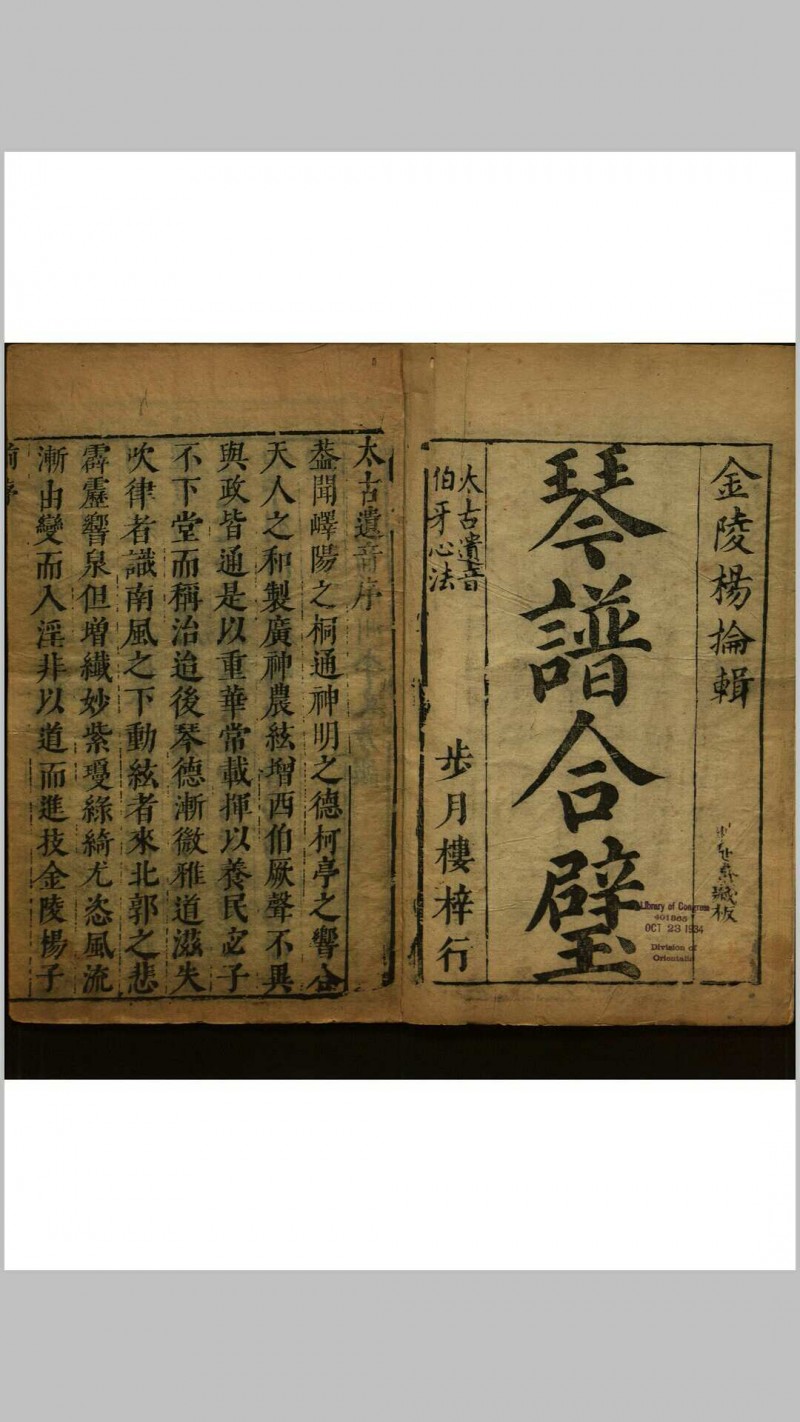 金陵楊掄輯
琴譜合璧
太古遺音
伯牙心法
步月樓梓行
藏板
Library of Congress
OCT 23 1934
Division of
Orientalia
太古遺音序
蓋聞嶧陽之桐通神明之德柯亭之響合
天人之和製廣神農絃增西伯厥聲不異
與政皆通是以重華常載揮以養民宓子
不下堂而稱治迨後琴德漸微雅道滋失
吹律者識南風之下動絃者來北郭之悲
霹靂響泉但增纖妙紫瓊綠綺尤恣風流
漸由變而入淫非以道而進技金陵楊子